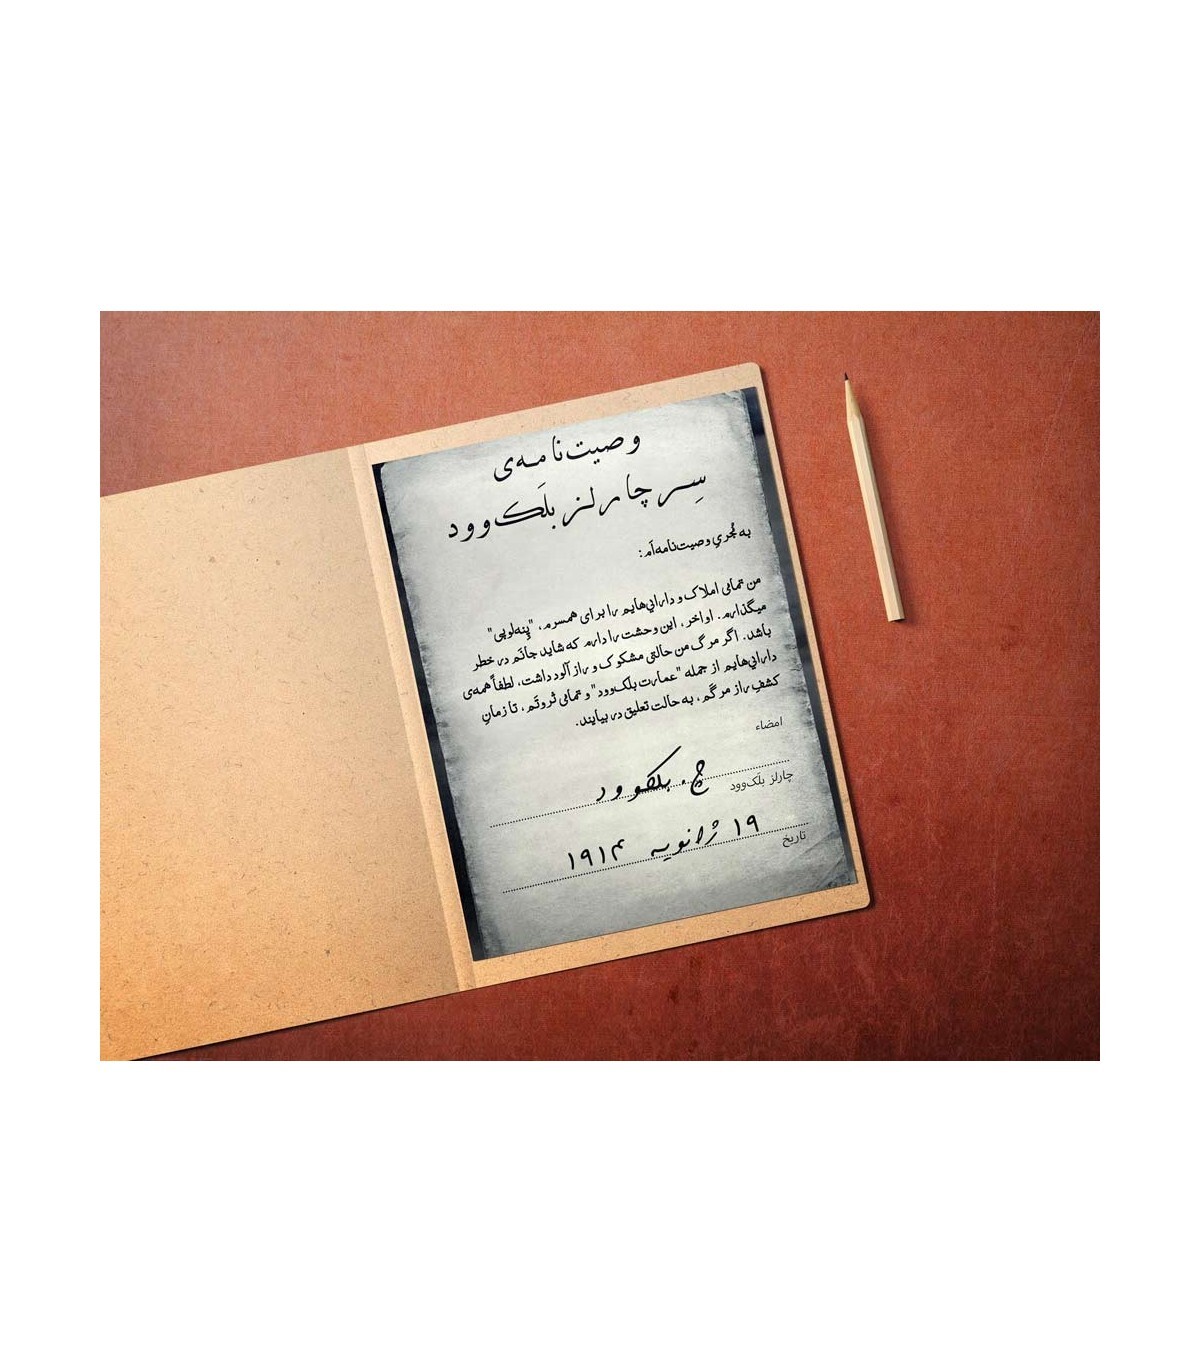 وصیت‌نامه‌ی
سِر چارلز بلَک‌وود
به مُجریِ وصیت‌نامه‌اَم:
من تمامی املاک و دارایی‌هایم را برای همسرم، "پِنه‌لوپی"
میگذارم. اواخر، این وحشت را دارم که شاید جانَم در خطر
باشد. اگر مرگ من حالتی مشکوک و رازآلود داشت، لطفاً همه‌ی
دارایی‌هایم از جمله "عمارت بلک‌وود" و تمامی ثروتَم، تا زمانِ
کشفِ راز مرگَم، به حالت تعلیق در بیایند.
امضاء
چ. بلکوود
چارلز بلَک‌وود
۱۹ ژانویه ۱۹۱۴
تاریخ